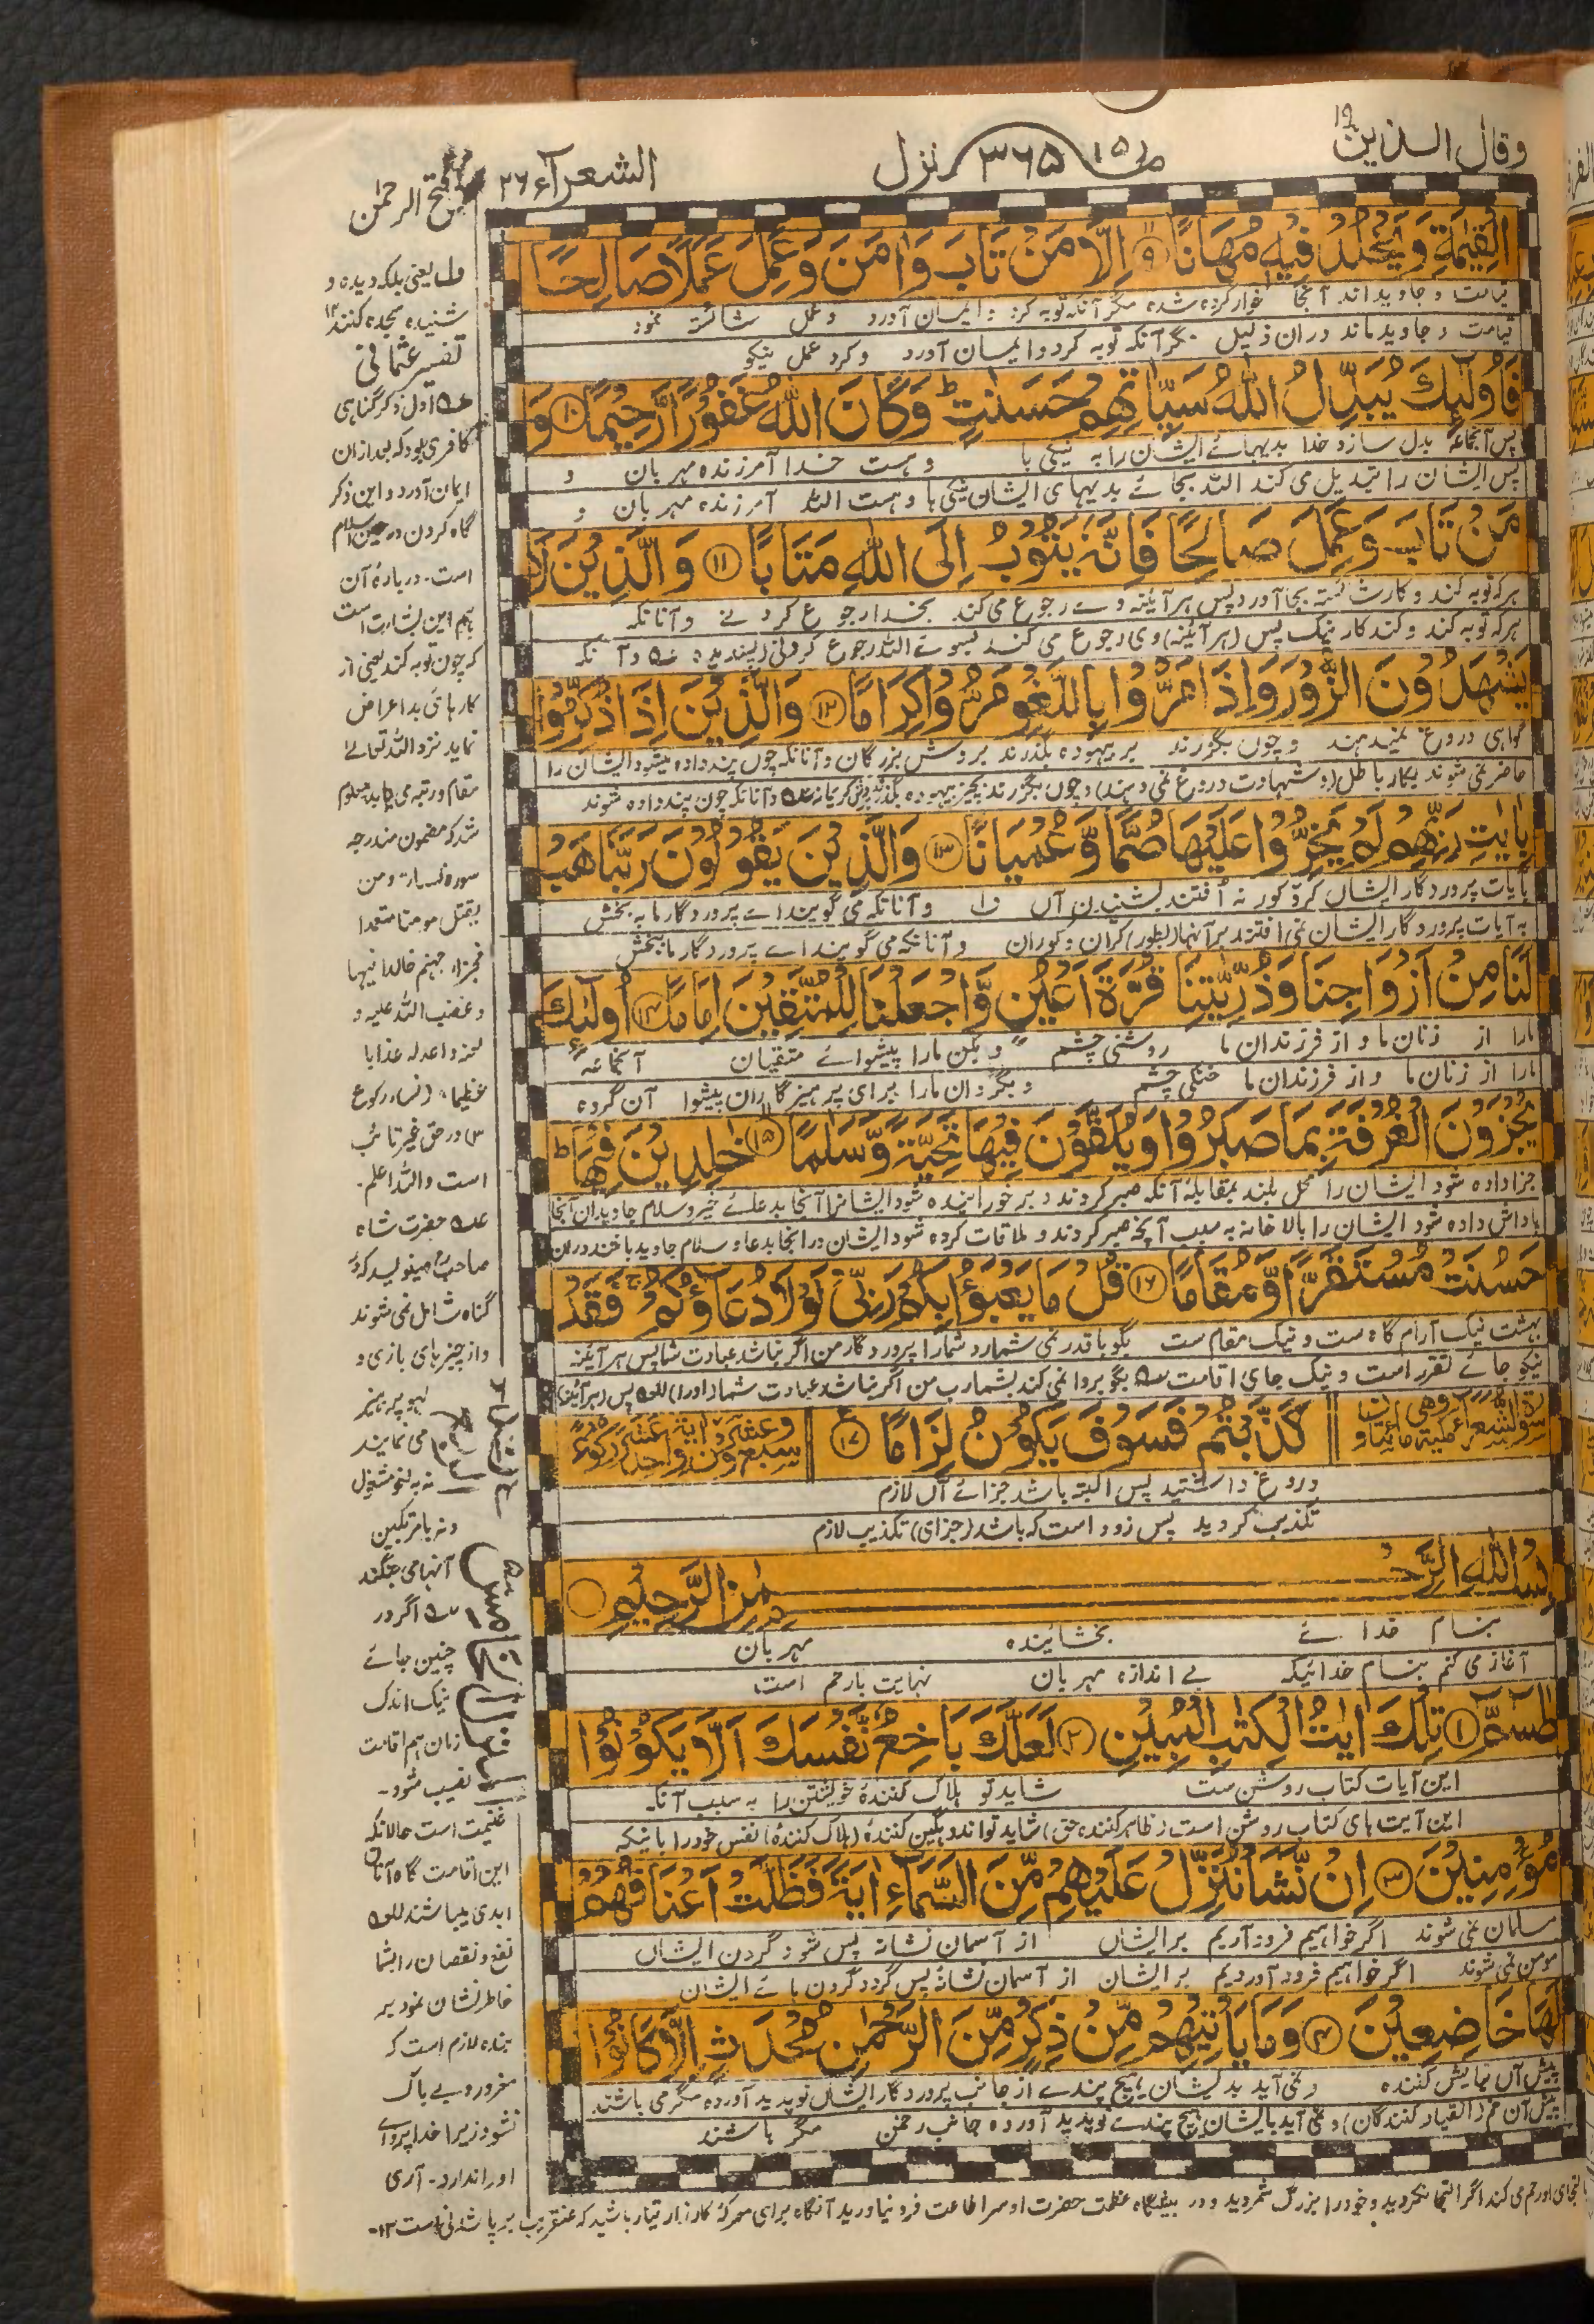 وقال الذین ۱۹
۳۶۵
نزل
الشعرآء ۲۶
فتح الرحمن
الْقِیٰمَةِ وَیَخْلُدْ فِیْهٖ مُهَانًا ۹ اِلَّا مَنْ تَابَ وَاٰمَنَ وَعَمِلَ عَمَلًا صَالِحًا
قیامت و جاوید ماند دران ذلیل مگر آنکه توبه کرد و ایمان آورد و کرد عمل نیکو
فَاُولٰٓئِكَ یُبَدِّلُ اللّٰهُ سَیِّاٰتِهِمْ حَسَنٰتٍ ؕ وَكَانَ اللّٰهُ غَفُوْرًا رَّحِیْمًا ۱۰ وَ
پس آنجماعه بدل سازد خدا بدیهائے ایشان را به نیکی ها و هست خدا آمرزنده مهربان و
پس ایشان را تبدیل می کند الله بجائے بدیهای ایشان نیکی ها و هست الله آمرزنده مهربان و
مَنْ تَابَ وَعَمِلَ صَالِحًا فَاِنَّهٗ یَتُوْبُ اِلَی اللّٰهِ مَتَابًا ۱۱ وَالَّذِیْنَ لَا
هرکه توبه کند و کار شائسته بجا آورد پس هر آئینه وے رجوع می کند بخدا رجوع کردنے و آنانکه
هرکه توبه کند و کند کار نیک پس (هر آئینه) وی رجوع می کند بسوے الله رجوع کردنی (پسندیده) و آنانکه
یَشْهَدُوْنَ الزُّوْرَ وَاِذَا مَرُّوْا بِاللَّغْوِ مَرُّوْا كِرَامًا ۱۲ وَالَّذِیْنَ اِذَا ذُكِّرُوْا
گواهی دروغ نمیدهند و چوں بگزرند بر بیهوده بگذرند بروش بزرگان و آنانکه چوں پند داده میشود ایشان را
حاضر نمی شوند بکار باطل (و شهادت دروغ نمی دهند) و چون بگزرند بچیز بیهوده بگذرند و آنانکه چون پند داده شوند
بِاٰیٰتِ رَبِّهِمْ لَمْ یَخِرُّوْا عَلَیْهَا صُمًّا وَّعُمْیَانًا ۱۳ وَالَّذِیْنَ یَقُوْلُوْنَ رَبَّنَا هَبْ
بآیات پروردگار ایشاں کر و کور نه اُفتند بشنیدن آں و آنانکه می گویند اے پروردگار ما به بخش
به آیات پروردگار ایشان نمی افتند بر آنها (بطور) کران و کوران و آنانکه می گویند اے پروردگار ما ببخش
لَنَا مِنْ اَزْوَاجِنَا وَذُرِّیّٰتِنَا قُرَّةَ اَعْیُنٍ وَّاجْعَلْنَا لِلْمُتَّقِیْنَ اِمَامًا ۱۴ اُولٰٓئِكَ
مارا از زنان ما و از فرزندان ما روشنی چشم و بکن مارا پیشوائے متقیان آنجماعه
مارا از زنان ما و از فرزندان ما خنکی چشم و بگردان مارا برای پرهیزگاران پیشوا آن گروه
یُجْزَوْنَ الْغُرْفَةَ بِمَا صَبَرُوْا وَیُلَقَّوْنَ فِیْهَا تَحِیَّةً وَّسَلٰمًا ۱۵ خٰلِدِیْنَ فِیْهَا ؕ
جزا داده شود ایشان را محل بلند بمقابله آنکه صبر کردند و
پاداش داده شود ایشان را بالاخانه به سبب آنچه صبر کردند و ملاقات کرده شود ایشان در آنجا بدعا و سلام جاوید باشند دران
حَسُنَتْ مُسْتَقَرًّا وَّمُقَامًا ۱۶ قُلْ مَا یَعْبَؤُا بِكُمْ رَبِّیْ لَوْلَا دُعَآؤُكُمْ ۚ فَقَدْ
بهشت نیک آرام گاه ست و نیک مقام ست بگو باقدر نمی شمارد شمارا پروردگار من اگر نباشد عبادت شما پس هر آئینه
نیکو جائے تقرر است و نیک جای اقامت بگو پروا نمی کند بشما رب من اگر نباشد عبادت شما (اورا) پس (هر آئینه)
كَذَّبْتُمْ فَسَوْفَ یَكُوْنُ لِزَامًا ۱۷
دروغ داشتید پس البته باشد جزائے آں لازم
تکذیب کردید پس زود است که باشد (جزای) تکذیب لازم
بِسْمِ اللّٰهِ الرَّحْمٰنِ الرَّحِیْمِ
بنام خدائے بخشاینده مهربان
آغاز می کنم بنام خدائیکه بے اندازه مهربان نهایت بارحم است
طٰسٓمّٓ ۱ تِلْكَ اٰیٰتُ الْكِتٰبِ الْمُبِیْنِ ۲ لَعَلَّكَ بَاخِعٌ نَّفْسَكَ اَلَّا یَكُوْنُوْا
این آیات کتاب روشن ست شاید تو هلاک کنندۀ خویشتن را به سبب آنکه
این آیت های کتاب روشن است (ظاهر کننده حق) شاید تو اندوهگین کنندۀ (هلاک کنندۀ) نفس خود را باینکه
مُؤْمِنِیْنَ ۳ اِنْ نَّشَاْ نُنَزِّلْ عَلَیْهِمْ مِّنَ السَّمَآءِ اٰیَةً فَظَلَّتْ اَعْنَاقُهُمْ
مسلمان نمی شوند اگر خواهیم فرود آریم بر ایشاں از آسمان نشانه پس شود گردن ایشاں
مومن نمی شوند اگر خواهیم فرود آوردیم بر ایشان از آسمان نشانۀ پس گردد گردن هائے ایشان
لَهَا خَاضِعِیْنَ ۴ وَمَا یَاْتِیْهِمْ مِّنْ ذِكْرٍ مِّنَ الرَّحْمٰنِ مُحْدَثٍ اِلَّا كَانُوْا
پیش آں نیایش کننده و نمی آید بدیشان هیچ پندے از جانب پروردگار ایشاں نو پدید آورده مگر می باشند
پیش آن خم (انقیاد کنندگان) و نمی آید بایشان هیچ پندے نو پدید آورده جانب رحمٰن مگر باشند
ول یعنی بلکه دیده و
شنیده سجده کنند ۱۲
تفسیر عثمانی
اول ذکر گناهی
کافری بود که بعد ازان
ایمان آورد و این ذکر
گناه کردن در حین اسلام
است. دربارۀ آن
هم این بشارت است
که چون توبه کند یعنی از
کارهائی بد اعراض
نماید نزد الله تعالےٰ
مقام و رتبه می یابد معلوم
شد که مضمون مندرجه
سوره نساء ومن
یقتل مومنا متعمدا
فجزاء جهنم خالدا فیها
و غضب الله علیه و
لعنه و اعد له عذابا
عظیما (نساء رکوع
۱۳) در حق غیر تائب
است والله اعلم.
حضرت شاه
صاحبؒ مینویسد که در
گناه شامل نمی شوند
و از چیزهای بازی و
لهو پرهیز
می نمایند
نه به لغو مشغول
آنها می جنگند
اگر در
چنین جائے
نیک اندک
زمان هم اقامت
نصیب شود -
غنیمت است حالانکه
این اقامت گاه آنان
ابدی میباشد
نفع و نقصان را بشما
خاطرنشان نمودیم
بنده لازم است که
مغرور و بے باک
نشود زیرا خدا پروائے
او را ندارد - آری